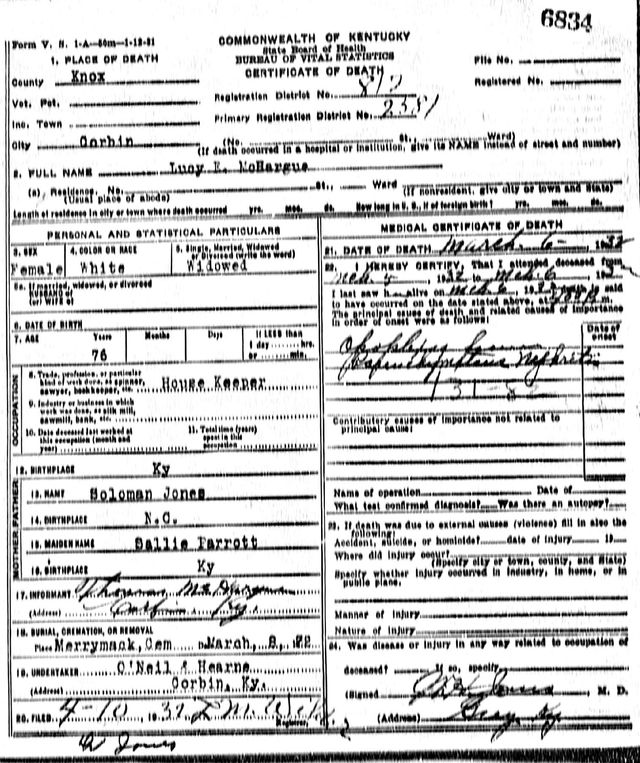 6834
Form V. S. 1-A—50m—1-12-31
COMMONWEALTH OF KENTUCKY
State Board of Health
BUREAU OF VITAL STATISTICS
CERTIFICATE OF DEATH
1. PLACE OF DEATH
County Knox
Vot. Pct.
Inc. Town
City Corbin
Registration District No.
Primary Registration District No. 2551
File No.
Registered No.
(No. St., Ward)
(If death occurred in a hospital or institution, give its NAME instead of street and number)
2. FULL NAME Lucy E. McHargue
(a) Residence, No. St., Ward
(Usual place of abode) (If nonresident, give city or town and State)
Length of residence in city or town where death occurred yrs. mos. ds. How long in U. S., if of foreign birth? yrs. mos. ds.
PERSONAL AND STATISTICAL PARTICULARS
3. SEX 4. COLOR OR RACE 5. Single, Married, Widowed or Divorced (write the word)
Female White Widowed
5a. If married, widowed, or divorced
HUSBAND of
(or) WIFE of
6. DATE OF BIRTH
7. AGE Years Months Days If LESS than
1 day hrs.
or min.
76
8. Trade, profession, or particular
kind of work done, as spinner,
sawyer, bookkeeper, etc. House Keeper
9. Industry or business in which
work was done, as silk mill,
sawmill, bank, etc.
10. Date deceased last worked at
this occupation (month and
year)
11. Total time (years)
spent in this
occupation
OCCUPATION
12. BIRTHPLACE Ky
FATHER
13. NAME Soloman Jones
14. BIRTHPLACE N.C.
MOTHER
15. MAIDEN NAME Sallie Parrott
16. BIRTHPLACE Ky
17. INFORMANT
(Address) Corbin Ky.
18. BURIAL, CREMATION, OR REMOVAL
Place Merrymack, Cem March, 8,
19. UNDERTAKER O'Neil & Hearne
(Address) Corbin, Ky.
20. FILED 4-10 1932
Registrar
Jones
MEDICAL CERTIFICATE OF DEATH
21. DATE OF DEATH March 6 1932
22. I HEREBY CERTIFY, That I attended deceased from
1932 to Mch 6, 193
I last saw h alive on Mch 6, 19 death is said
to have occurred on the date stated above, at m.
The principal cause of death and related causes of importance
in order of onset were as follows:
Date of
onset
Parenchymatous Nephritis
131-
Contributory causes of importance not related to
principal cause:
Name of operation Date of
What test confirmed diagnosis? Was there an autopsy?
23. If death was due to external causes (violence) fill in also the
following:
Accident, suicide, or homicide? date of injury 19
Where did injury occur?
(Specify city or town, county, and State)
Specify whether injury occurred in industry, in home, or in
public place.
Manner of Injury
Nature of Injury
24. Was disease or injury in any way related to occupation of
deceased? If so, specify
(Signed Jones M. D.
(Address) Gray, Ky